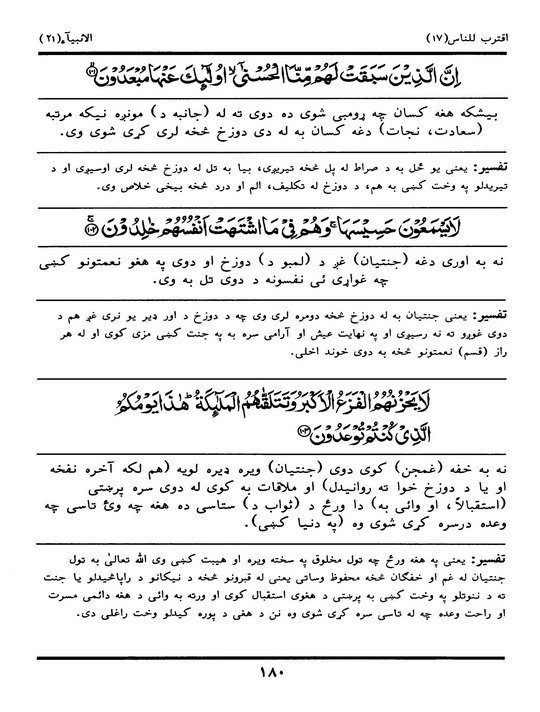 اقترب للناس(۱۷)
الانبیآء(۲۱)
اِنَّ الَّذِیْنَ سَبَقَتْ لَهُمْ مِّنَّا الْحُسْنٰۤی ۙ اُولٰٓىِٕكَ عَنْهَا مُبْعَدُوْنَ ۱۰۱
بیشکه هغه کسان چه ړومبی شوی ده دوی ته له (جانبه د) مونږه نیکه مرتبه
(سعادت، نجات) دغه کسان به له دی دوزخ څخه لری کړی شوی وی.
تفسیر: یعنی یو ځل به د صراط له پل څخه تیریږی، بیا به تل له دوزخ څخه لری اوسیږی او د
تیریدلو په وخت کښی به هم، د دوزخ له تکلیف، الم او درد څخه بیخی خلاص وی.
لَا یَسْمَعُوْنَ حَسِیْسَهَا ۚ وَهُمْ فِیْ مَا اشْتَهَتْ اَنْفُسُهُمْ خٰلِدُوْنَ ۱۰۲
نه به اوری دغه (جنتیان) غږ د (لمبو د) دوزخ او دوی په هغو نعمتونو کښی
چه غواړی ئی نفسونه د دوی تل به وی.
تفسیر: یعنی جنتیان به له دوزخ څخه دومره لری وی چه د دوزخ د اور ډیر یو نری غږ هم د
دوی غوږو ته نه رسیږی او په نهایت عیش او آرامی سره به په جنت کښی مزی کوی او له هر
راز (قسم) نعمتونو څخه به دوی خوند اخلی.
لَا یَحْزُنُهُمُ الْفَزَعُ الْاَكْبَرُ وَتَتَلَقّٰىهُمُ الْمَلٰٓىِٕكَةُ ؕ هٰذَا یَوْمُكُمُ
الَّذِیْ كُنْتُمْ تُوْعَدُوْنَ ۱۰۳
نه به خفه (غمجن) کوی دوی (جنتیان) ویره ډیره لویه (هم لکه آخره نفخه
او یا د دوزخ خوا ته روانیدل) او ملاقات به کوی له دوی سره پرښتی
(استقبالاً، او وائی به) دا ورځ د (ثواب د) ستاسی ده هغه چه وئ تاسی چه
وعده درسره کړی شوی وه (په دنیا کښی).
تفسیر: یعنی په هغه ورځ چه ټول مخلوق په سخته ویره او هیبت کښی وی الله تعالیٰ به ټول
جنتیان له غم او خفګان څخه محفوظ وساتی یعنی له قبرونو څخه د نیکانو د راپاڅیدلو یا جنت
ته د ننوتلو په وخت کښی به پرښتی د هغوی استقبال کوی او ورته به وائی د هغه دائمی مسرت
او راحت وعده چه له تاسی سره کړی شوی وه نن د هغی د پوره کیدلو وخت راغلی دی.
۱۸۰